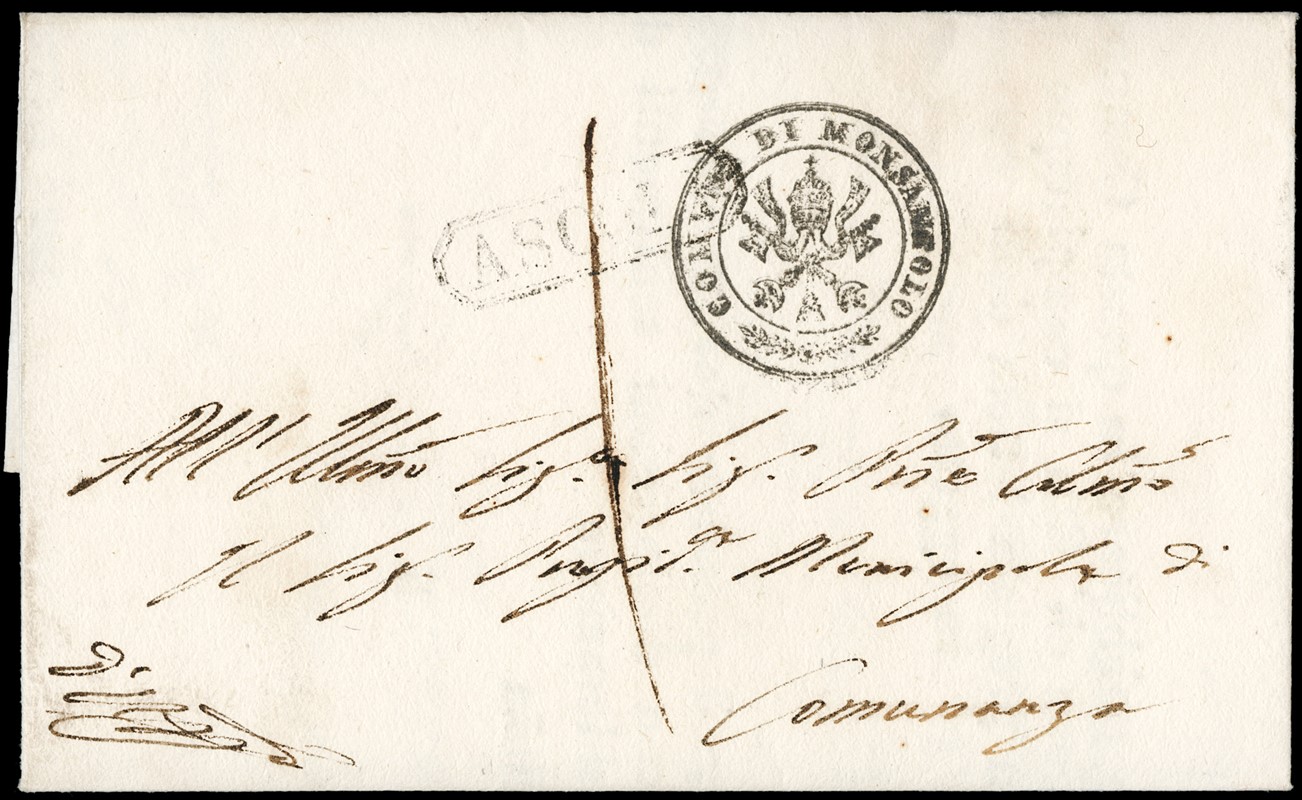 COMUNE DI MONSAMPOLO
ASCOLI
All' Illmo Sig.r Sig. Pne Colmo
Il Sig. Presid.te Municipale di
Comunanza